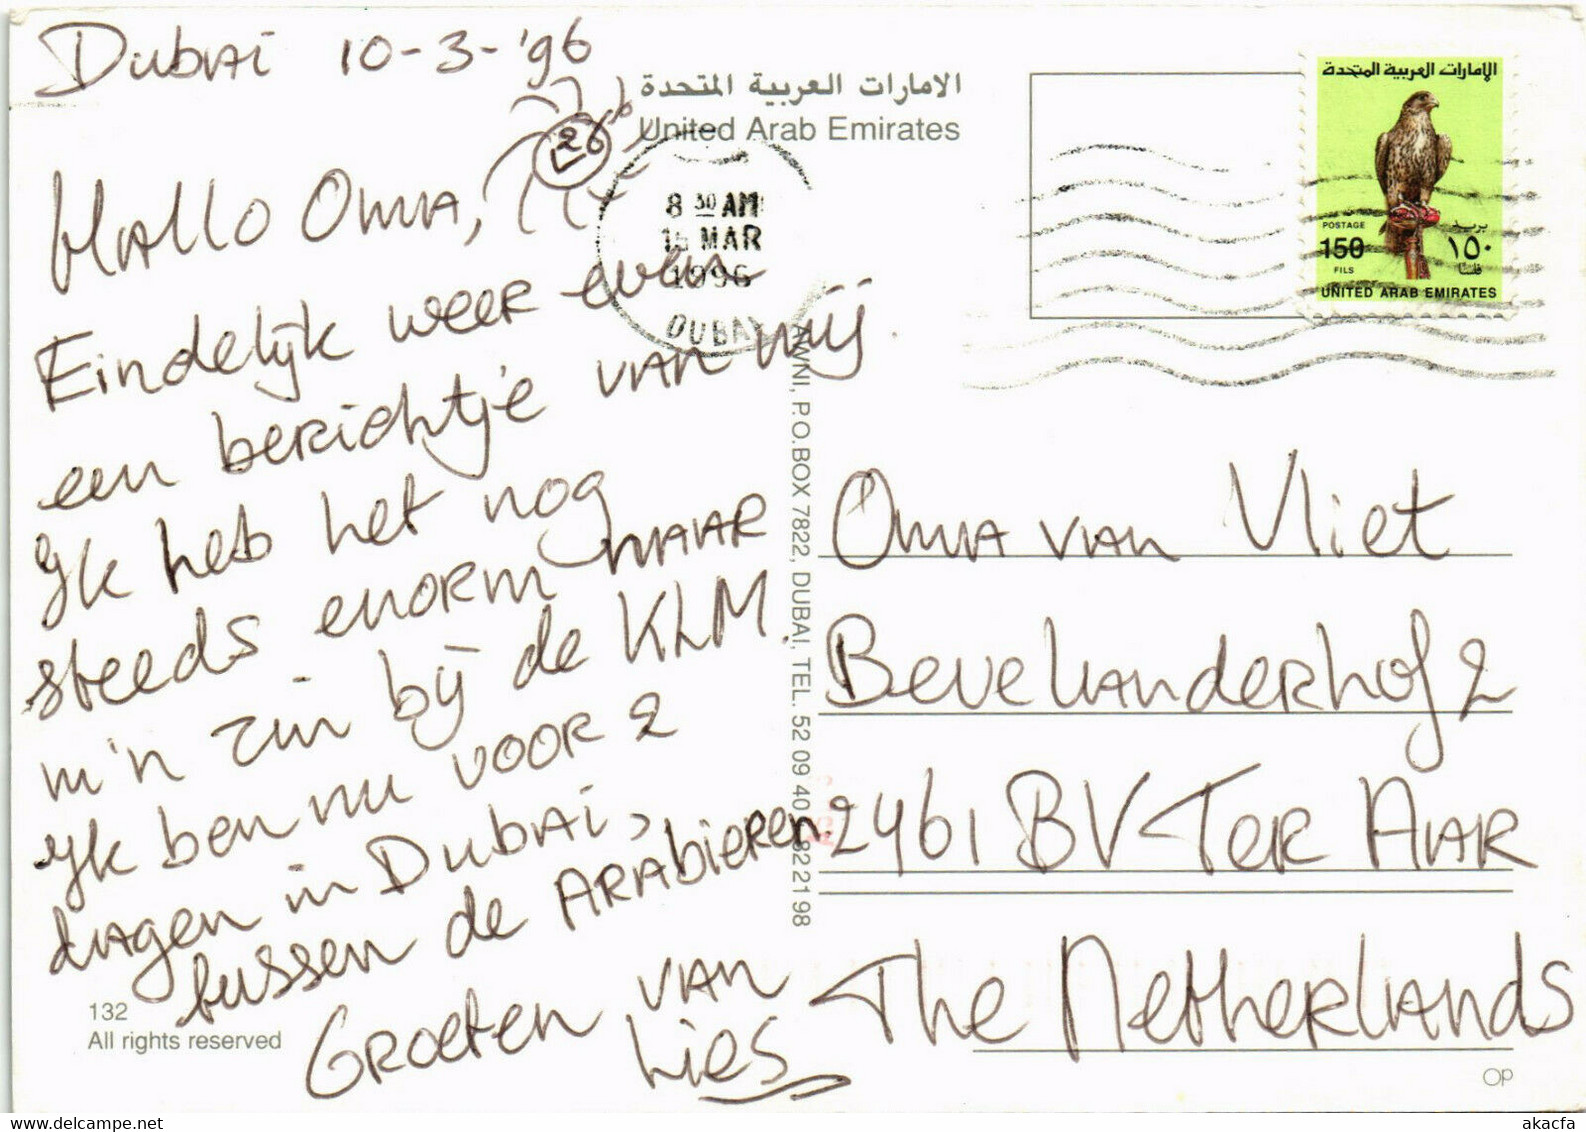 Dubai 10-3-'96
الامارات العربية المتحدة
United Arab Emirates
Hallo Oma,
Eindelijk weer even
een berichtje van mij.
Ik heb het nog
steeds enorm naar
m'n zin bij de KLM.
Ik ben nu voor 2
dagen in Dubai,
tussen de Arabieren
Groeten van
Lies
132
All rights reserved
8 30 AM
MAR
1996
DUBAI
AWNI, P.O.BOX 7822, DUBAI, TEL. 52 09 40
82 21 98
الامارات العربية المتحدة
POSTAGE
150
FILS
بريد
١٥٠
فلسا
UNITED ARAB EMIRATES
Oma van Vliet
Bevelanderhof 2
2461 BV Ter Aar
The Netherlands
Op
akacfa